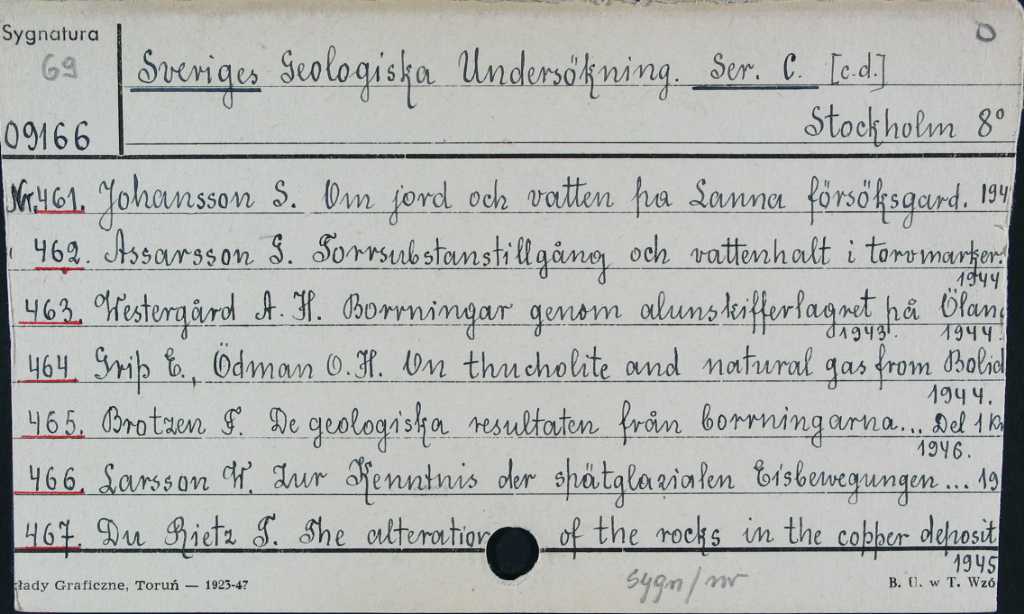 Sygnatura
69
09166
Sveriges Geologiska Undersökning. Ser. C. [c.d.]
Stockholm 8°
Nr. 461. Johansson S. Om jord och vatten pa Lanna försöksgard. 194
462. Assarsson G. Torrsubstanstillgång och vattenhalt i torvmarker.
1944
463. Westergård A. H. Borrningar genom alunskifferlagret på Ölan
1943. 1944.
464 Grip E., Ödman O. H. On thucholite and natural gas from Bolid
1944.
465. Brotzen F. De geologiska resultaten från borrningarna... Del 1
1946.
466. Larsson W. Zur Kenntnis der spätglazialen Eisbewegungen ... 19
467. Du Rietz T. The alteration of the rocks in the copper deposit
1945
łady Graficzne, Toruń — 1923-47
sygn/nr
B. U. w T. Wzó